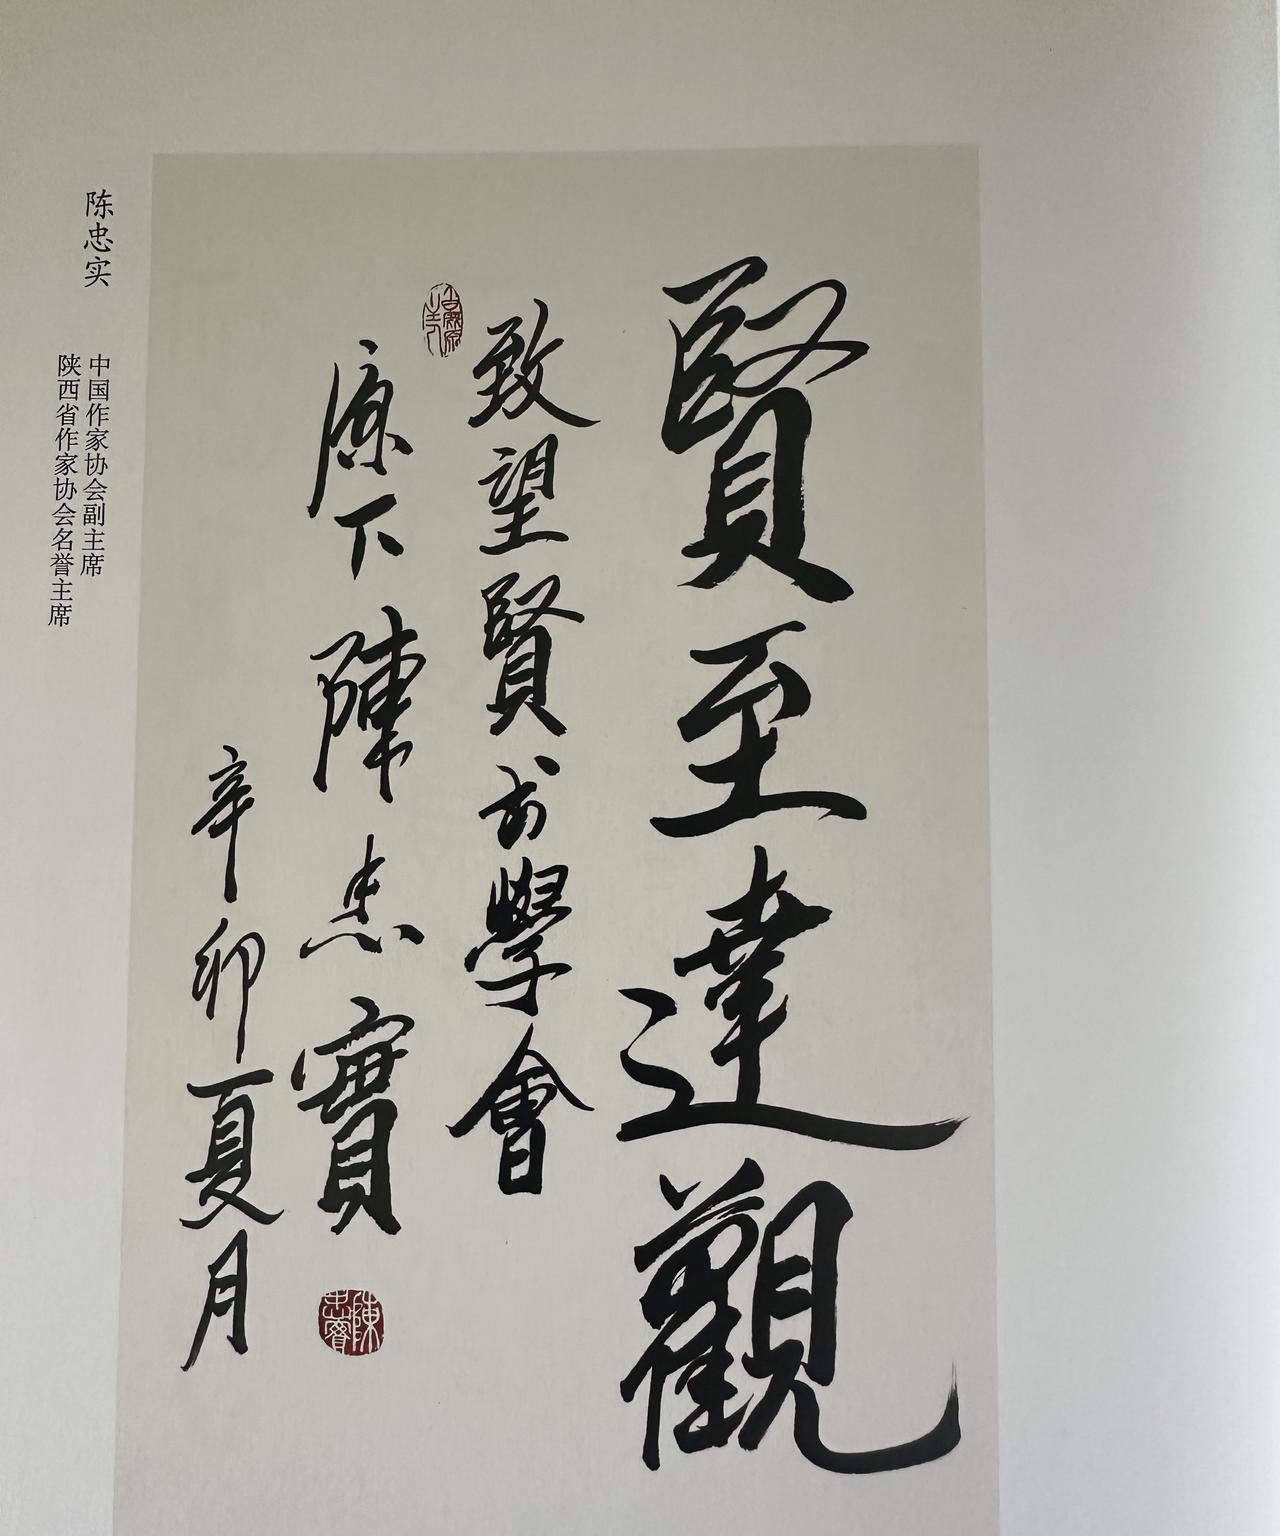 賢至達觀
致望賢學會
原下陳忠實
辛卯夏月
陳忠實
陈忠实
中国作家协会副主席
陕西省作家协会名誉主席